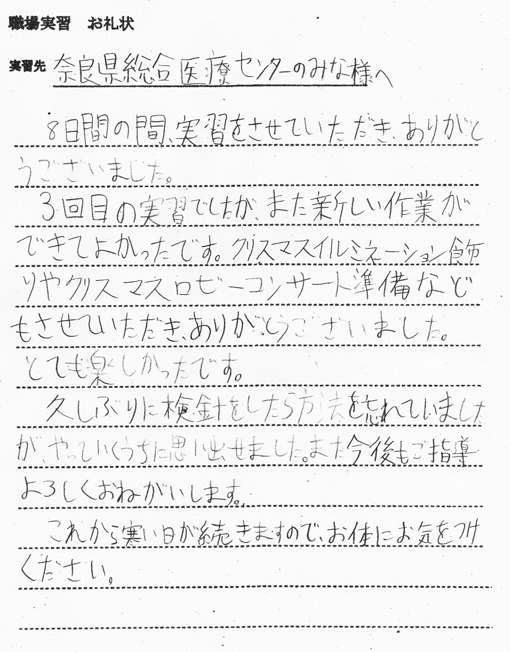 職場実習　お礼状
実習先 奈良県総合医療センターのみな様へ
8日間の間、実習をさせていただき、ありがと
うございました。
3回目の実習でしたが、また新しい作業が
できてよかったです。クリスマスイルミネーション飾
りやクリスマスロビーコンサート準備など
もさせていただき、ありがとうございました。
とても楽しかったです。
久しぶりに検針をしたら方法を忘れていました
が、やっていくうちに思い出せました。また今後もご指導
よろしくおねがいします。
これから寒い日が続きますので、お体にお気をつけ
ください。